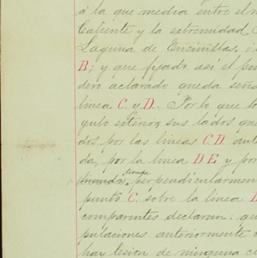 á la que media entre el
Caliente y la extremidad
Laguna de Encinillas,
B; y que fijado así el
dero aclarado queda
línea C y D. Por lo que
gulo
dos, por las líneas C. D.
da, por la línea D E y por
perpendicularmen
punto C. sobre la línea
comparentes declaran: que
pulaciones anteriormente
hay lesion de ninguna